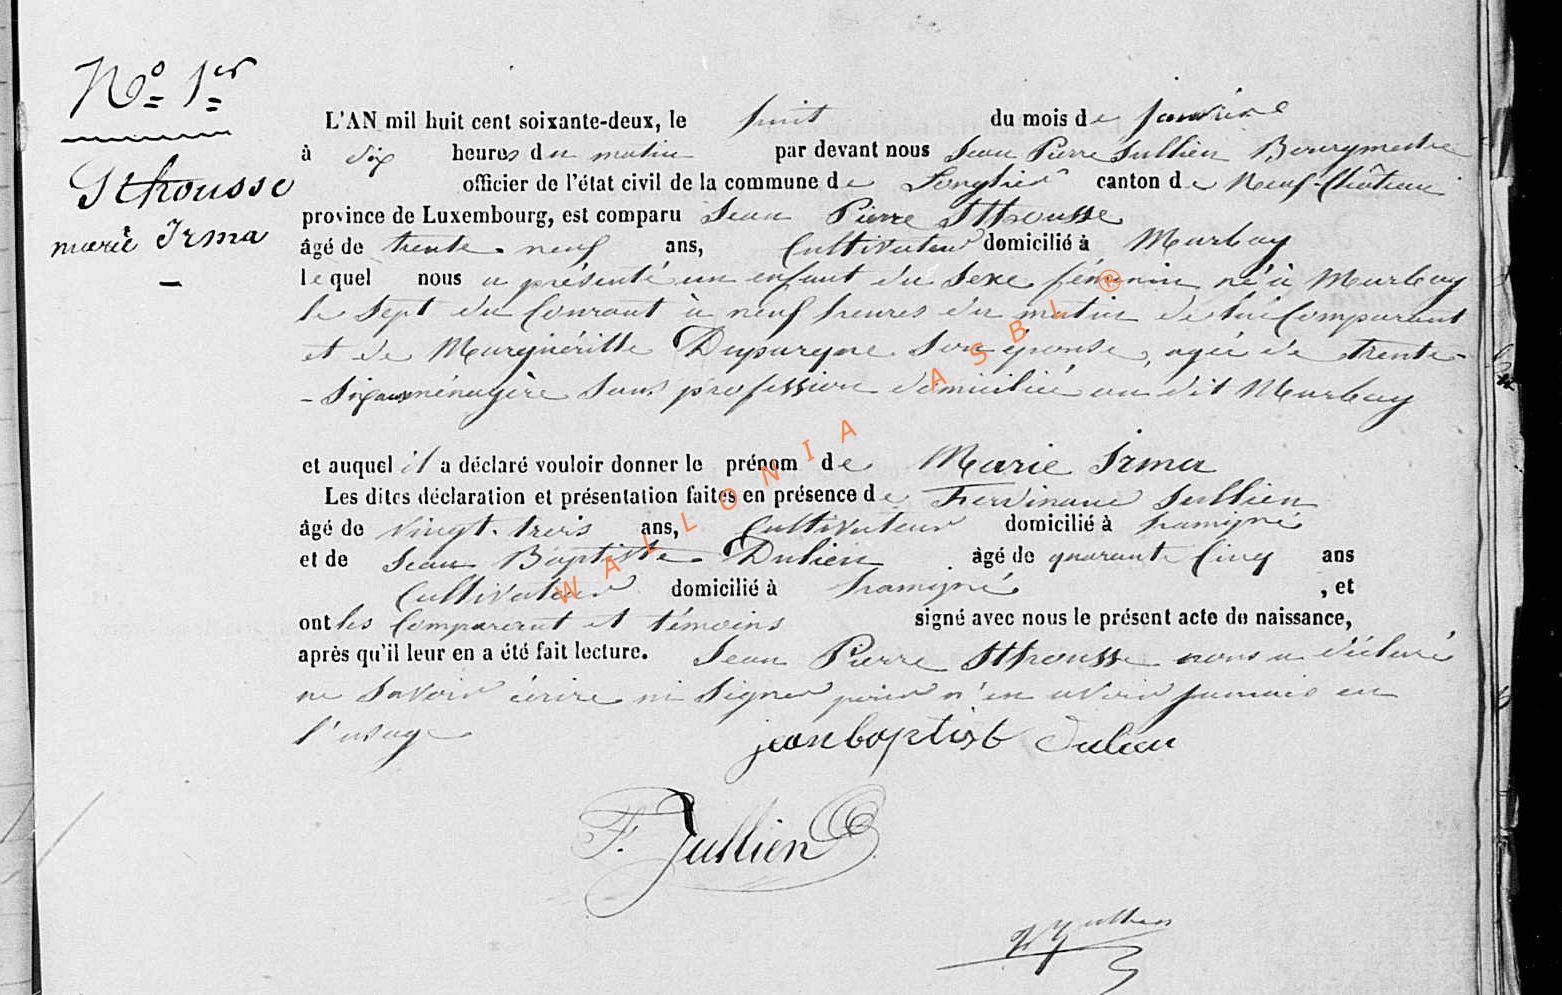 N° 1er
Sthousse
marie Irma
L'AN mil huit cent soixante-deux, le huit du mois de janvier
à dix heures du matin par devant nous Jean Pierre Jullien Bourgmestre
officier de l'état civil de la commune de Longlier canton de Neuf-Château
province de Luxembourg, est comparu Jean Pierre Sthousse
âgé de trente-neuf ans, Cultivateur domicilié à Marbay
lequel nous a présenté un enfant du sexe féminin né à Marbay
le sept du Courant à neuf heures du matin de lui Comparant
et de Marguéritte Duparque son épouse, agée de trente-
- six ans ménagère sans profession domiciliée au dit Marbay
et auquel il a déclaré vouloir donner le prénom de Marie Irma
Les dites déclaration et présentation faites en présence de Ferdinand Jullien
âgé de vingt-trois ans, Cultivateur domicilié à Tramigné
et de Jean Baptiste Dulieu âgé de quarante Cinq ans
Cultivateur domicilié à Tramigné , et
ont les Comparant et témoins signé avec nous le présent acte de naissance,
après qu'il leur en a été fait lecture. Jean Pierre Sthousse nous a déclaré
ne savoir écrire ni signer pour n'en avoir jamais eu
l'usage
jean baptist Dulieu
F. Jullien
Jullien
WALLONIA ASBL ®